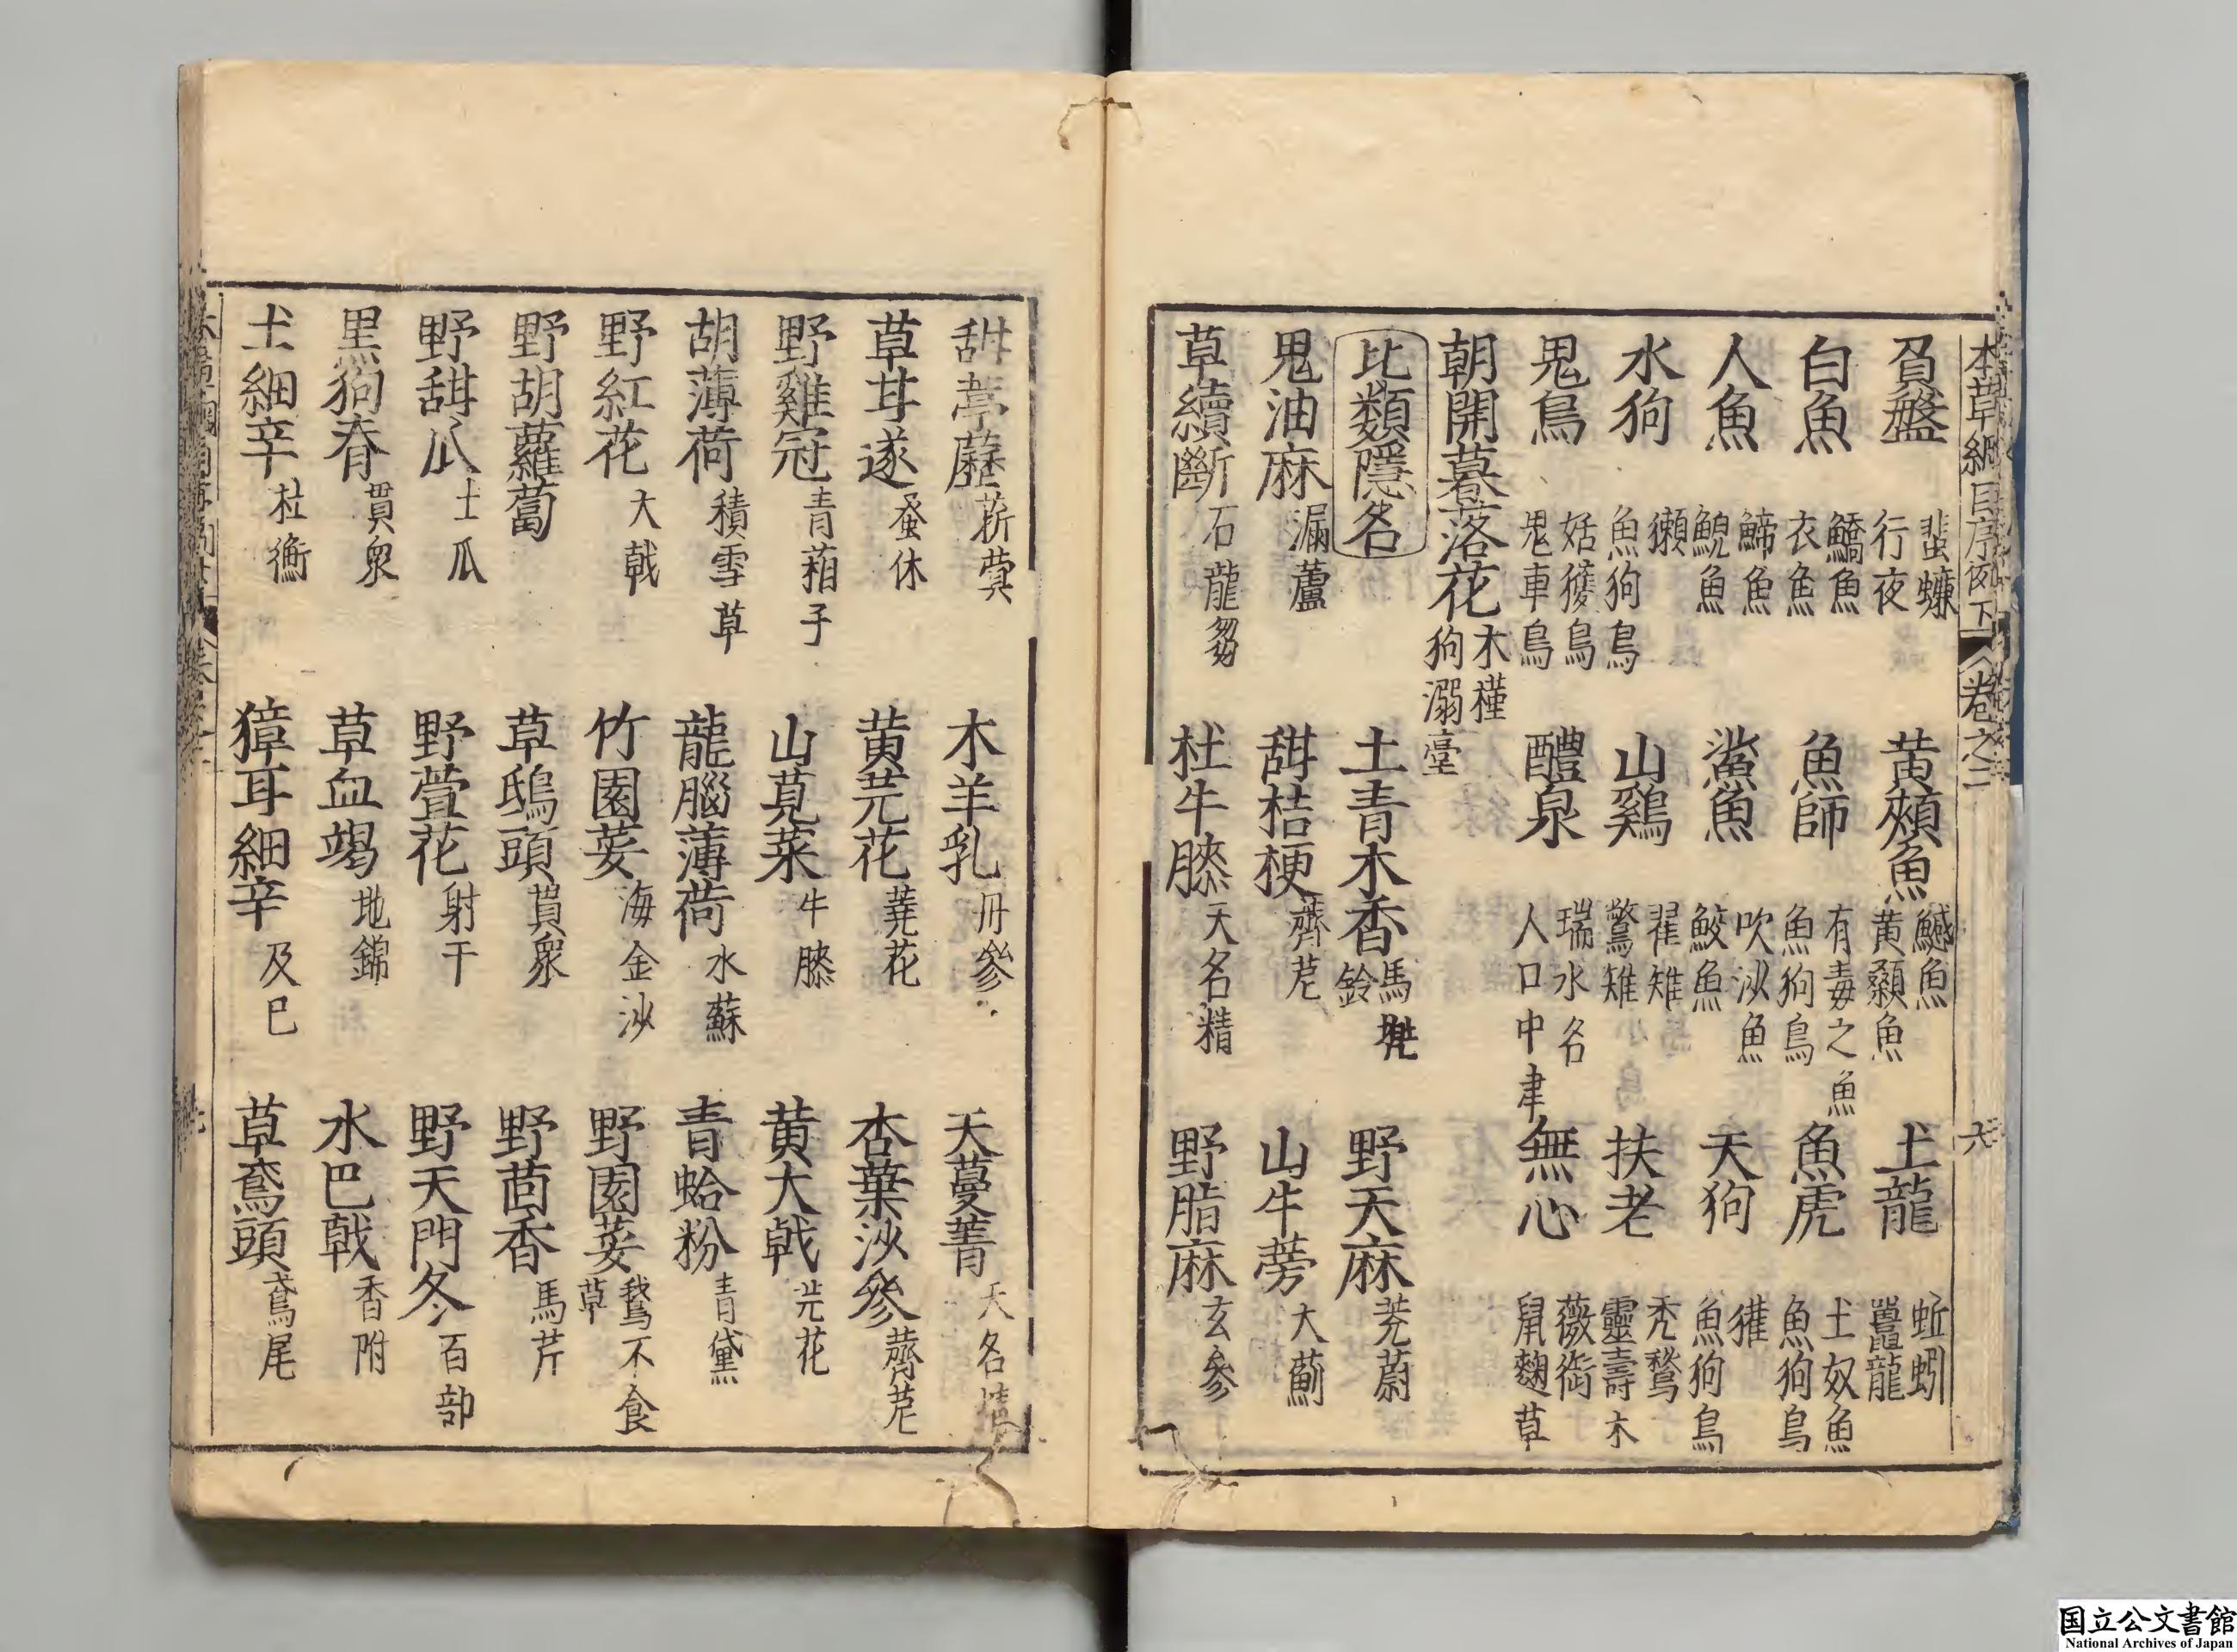 本草綱目序例下 卷之二 六
負盤 蜚蠊 行夜 黄頰魚 鱤魚 黄顙魚 土龍 蚯蚓 鼉龍
白魚 鱎魚 衣魚 魚師 有毒之魚 魚狗鳥 魚虎 土奴魚 魚狗鳥
人魚 鯑魚 鯢魚 鯊魚 吹沙魚 鮫魚 天狗 獾 魚狗鳥
水狗 獺 魚狗鳥 山鷄 翟雉 鷩雉 扶老 禿鶖 靈壽木
鬼鳥 姑獲鳥 鬼車鳥 醴泉 瑞水名 人口中津 無心 薇銜 鼠麴草
朝開暮落花 木槿 狗溺臺
比類隱名 土青木香 馬兠鈴 野天麻 茺蔚
鬼油麻 漏蘆 甜桔梗 薺苨 山牛蒡 大薊
草續斷 石龍芻 杜牛膝 天名精 野脂麻 玄參
甜葶藶 菥蓂 木羊乳 丹參 天蔓菁 天名精
草甘遂 蚤休 黄芫花 蕘花 杏葉沙參 薺苨
野雞冠 青葙子 山莧菜 牛膝 黄大戟 芫花
胡薄荷 積雪草 龍腦薄荷 水蘇 青蛤粉 青黛
野紅花 大戟 竹園荽 海金沙 野園荽 鵝不食草
野胡蘿蔔 草鴟頭 貫衆 野茴香 馬芹
野甜瓜 土瓜 野萱花 射干 野天門冬 百部
黑狗脊 貫衆 草血竭 地錦 水巴戟 香附
土細辛 杜衡 獐耳細辛 及巳 草鳶頭 鳶尾
国立公文書館
National Archives of Japan